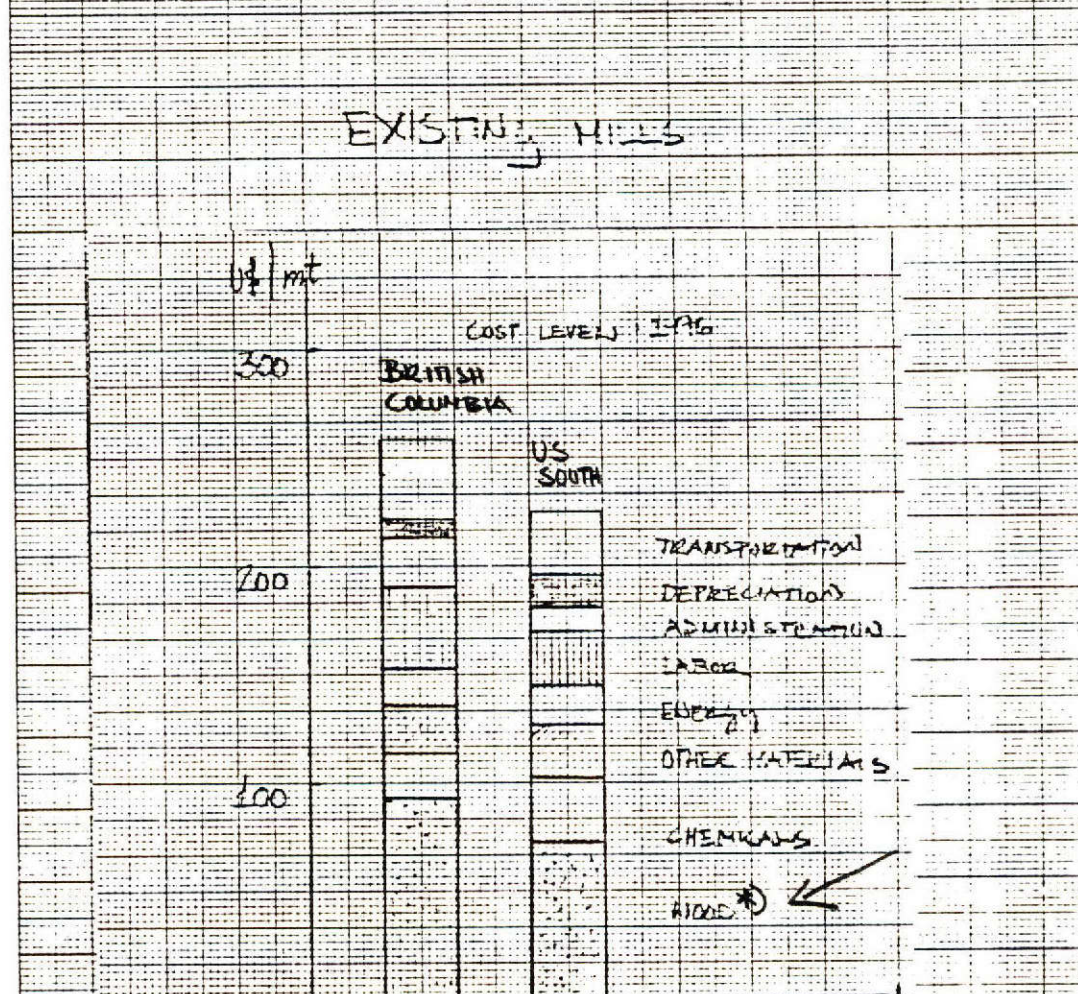 EXISTING MILLS
U$/mt
COST LEVEL: 1976
300
BRITISH
COLUMBIA
US
SOUTH
TRANSPORTATION
200
DEPRECIATION
ADMINISTRATION
LABOR
ENERGY
OTHER MATERIALS
100
CHEMICALS
WOOD *)